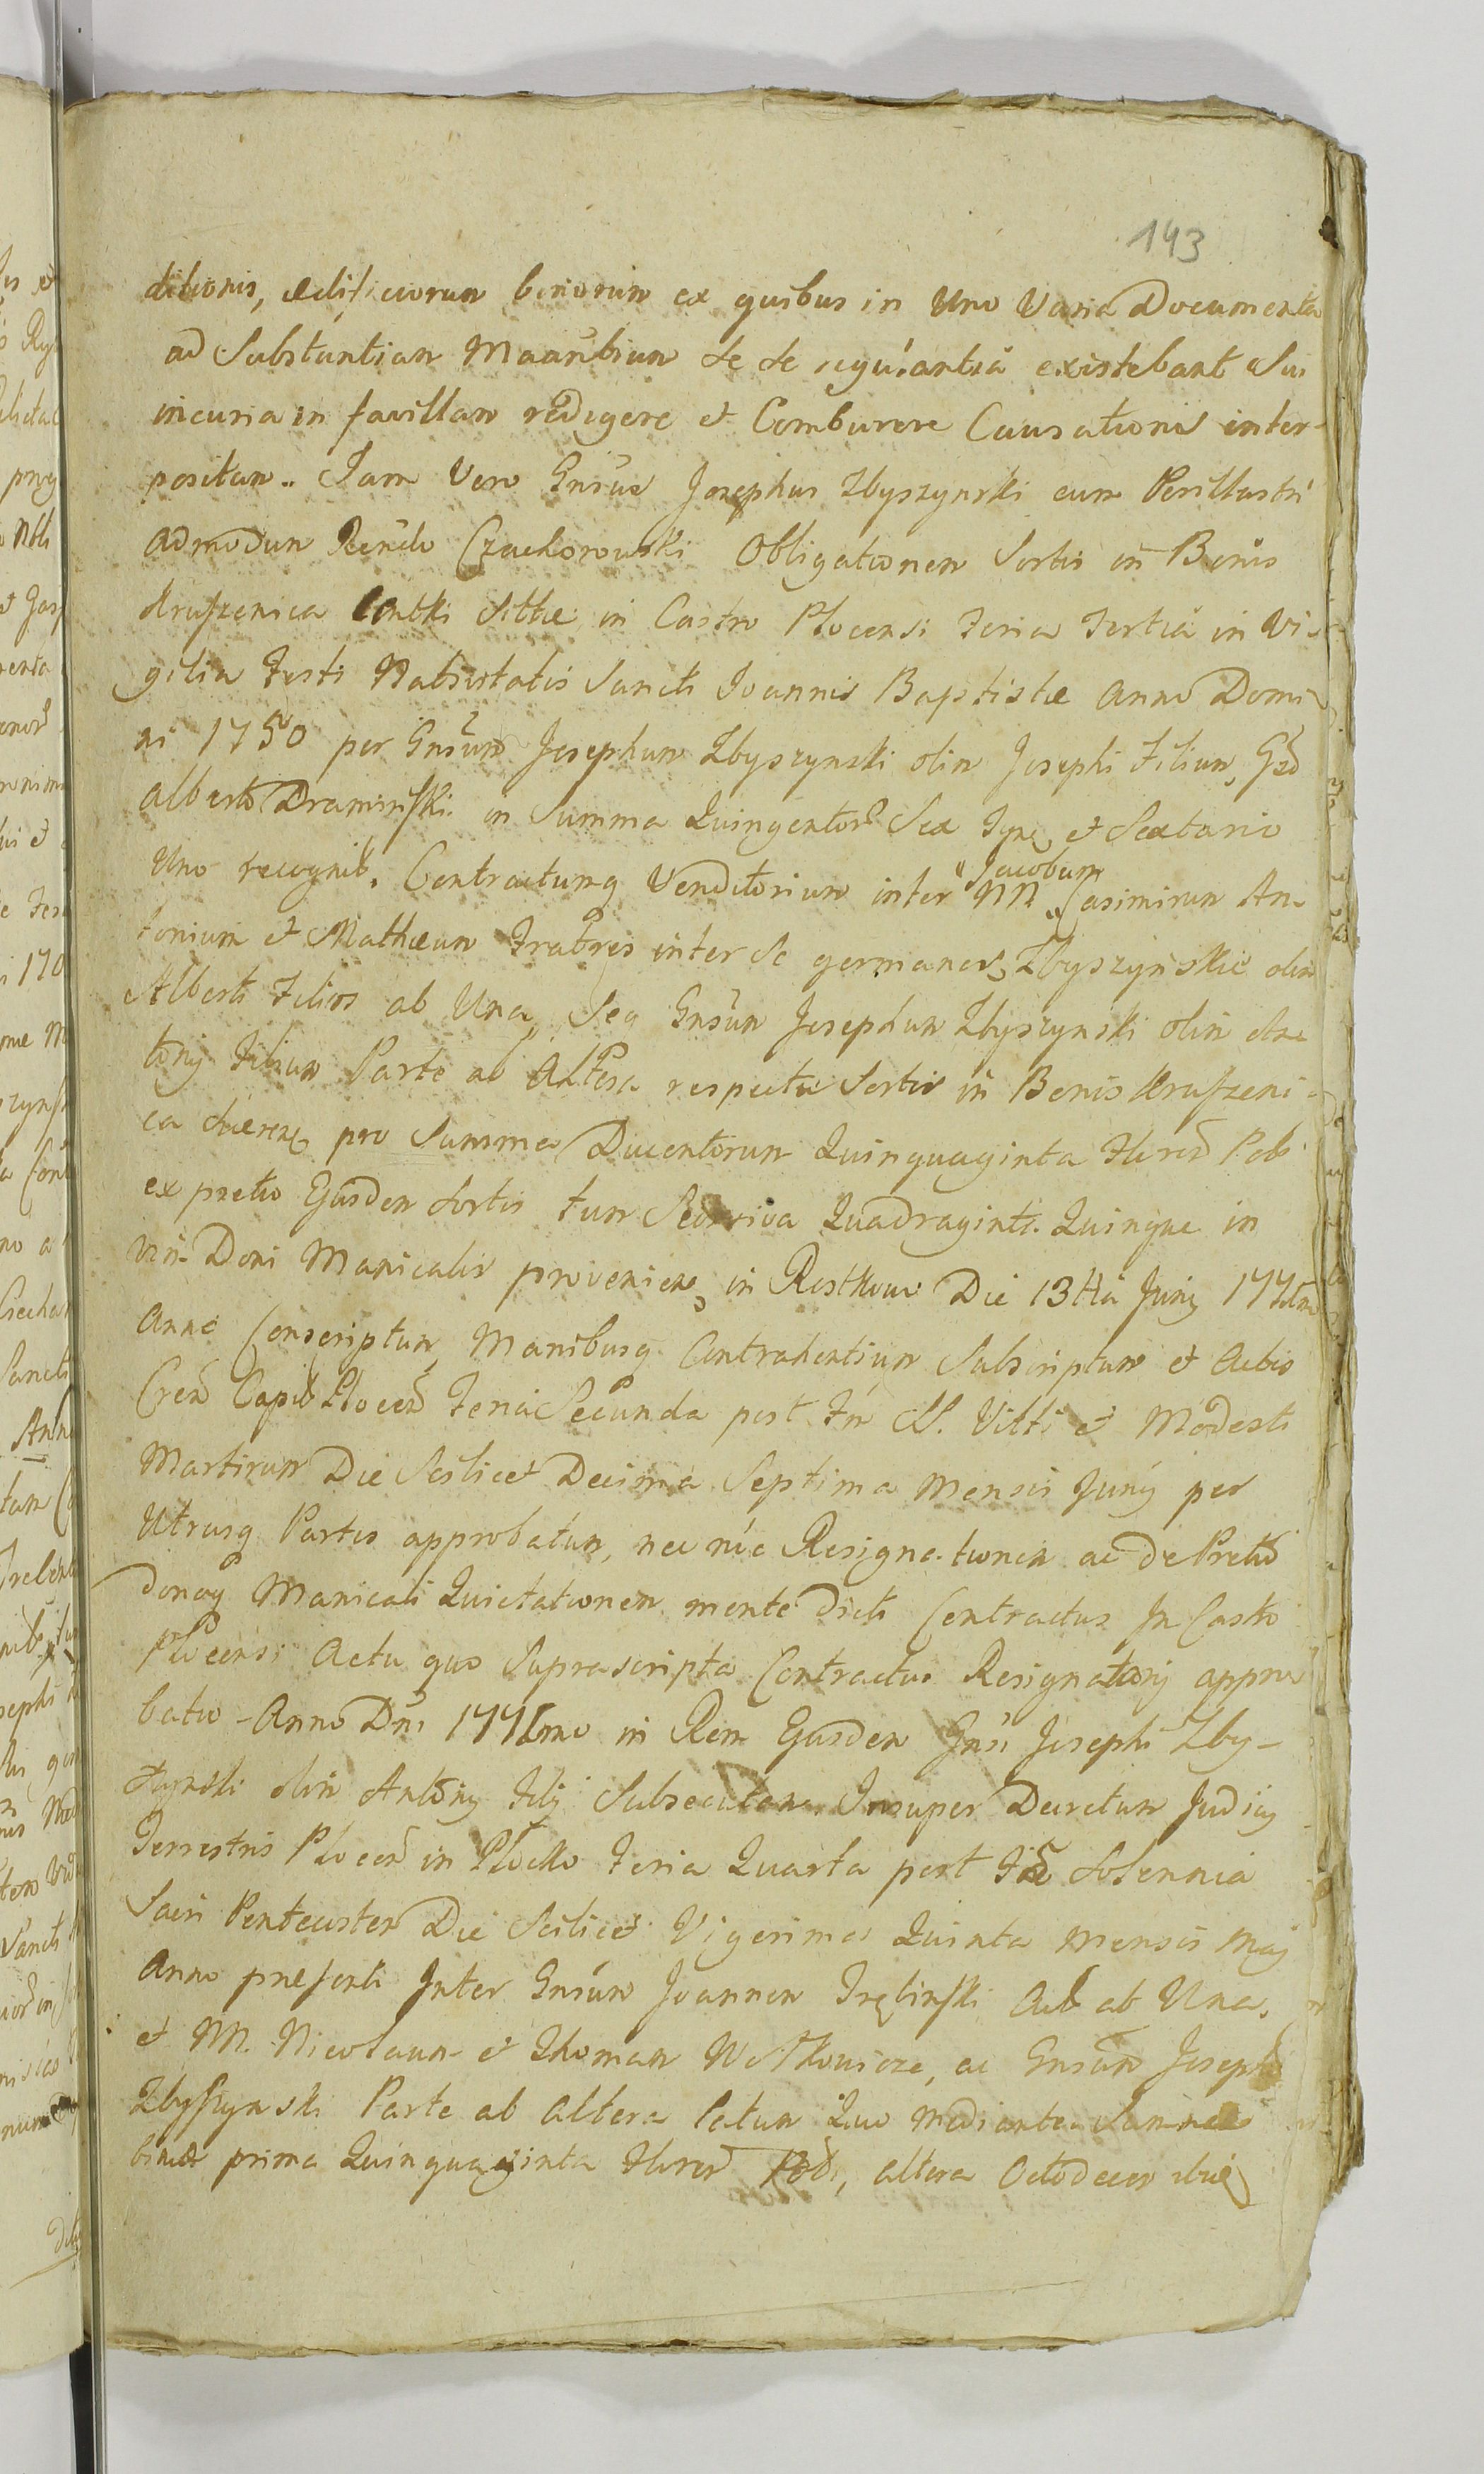 143
ditionis, ædificiorum binorum ex quibus in Uno Varia Documenta
ad Substantiam existebant Sui
incuria in favillam redigere et Comburere Causationis inter-
positam. Jam Vero Gnsus Josephus Zbyszynski cum Perillustri
Admodum Rendo Czachorowski Obligationem Sortis in Bonis
Kruszenica Sittæ in Castro Plocensi Feria Tertia in Vi-
gilia Festi Nativitatis Sancti Joannis Baptistæ Anno Domi-
ni 1750 per Gnsum Josephum Zbyszynski olim Josephi Filium, Gso
Alberto Draminski in Summa Quingentor Sex et Sextario
Uno recognit. Contractumq Venditorium inter NN Jacobum Casimirum An-
tonium et Mathæum Fratres inter Se germanos Zbyszynskie olim
Alberti Filios ab Una, Seq Gnsum Josephum Zbyszynski olim An-
tonij Filium Parte ab Altera respectu Sortis in Bonis Kruszeni-
ca pro Summa Ducentorum Quinquaginta Flren Pol
ex pretio Ejusdem Sortis tum Quadraginta Quinque in
vim Doni Manicalis provenien in Rostkowo Die 13tia Junij
Anno Conscriptum Manibusq Contrahentium Subscriptum et Actis
Cren Capit Plocen Feria Secunda post Fm SS. Viti et Modesti
Martirum Die Scilicet Decima Septima Mensis Junij per
Utrasq Partes approbatum, nec nic Resignationem ac de Pretio
donoq Manicali Quietationem mente dicti Contractus In Castro
Plocensi Actu quo Suprascripta Contractus Resignatorij appro
batio Anno Dni in Rem Ejusdem Gnsi Josephi Zby-
szynski olim Antonij Filij Subsecutam. Insuper Decretum Judicij
Terrestris Plocen in Plocko Feria Quarta post Solennia
Sacri Pentecostes Die Scilicet Vigesima Quinta Mensis Maij
Anno præsenti Inter Gnsum Joannem Trębinski Act ab Una,
et NN. Nicolaum et Thomam ac Gnsum Joseph
Zbyszynski Parte ab Altera latum Quo Mediante Summas
binas prima Quinquaginta Flren Pol, altera Octodecem